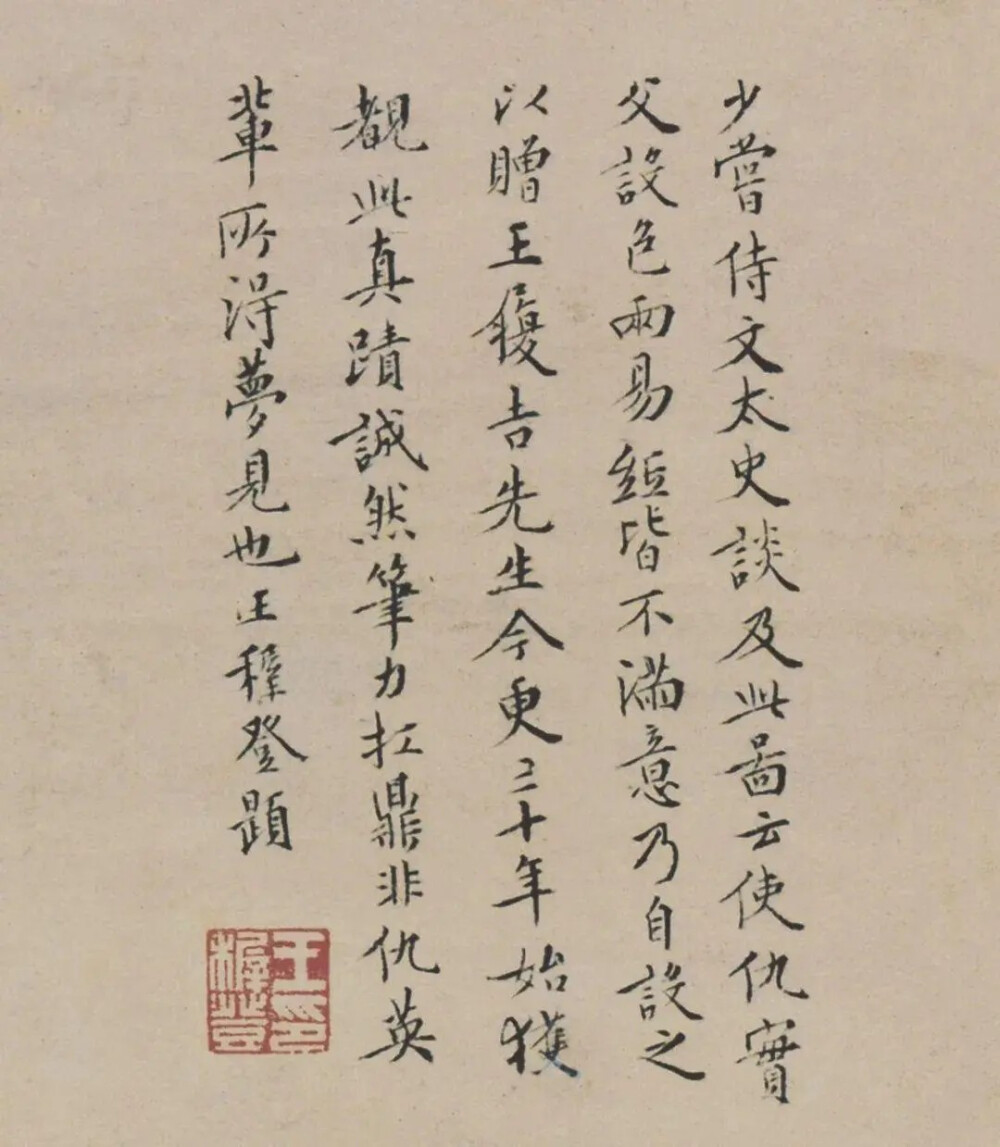 少嘗侍文太史談及此圖云使仇實
父設色兩易紙皆不滿意乃自設之
以贈王履吉先生今更三十年始獲
覩此真蹟誠然筆力扛鼎非仇英
輩所得夢見也王穉登題
王印穉登